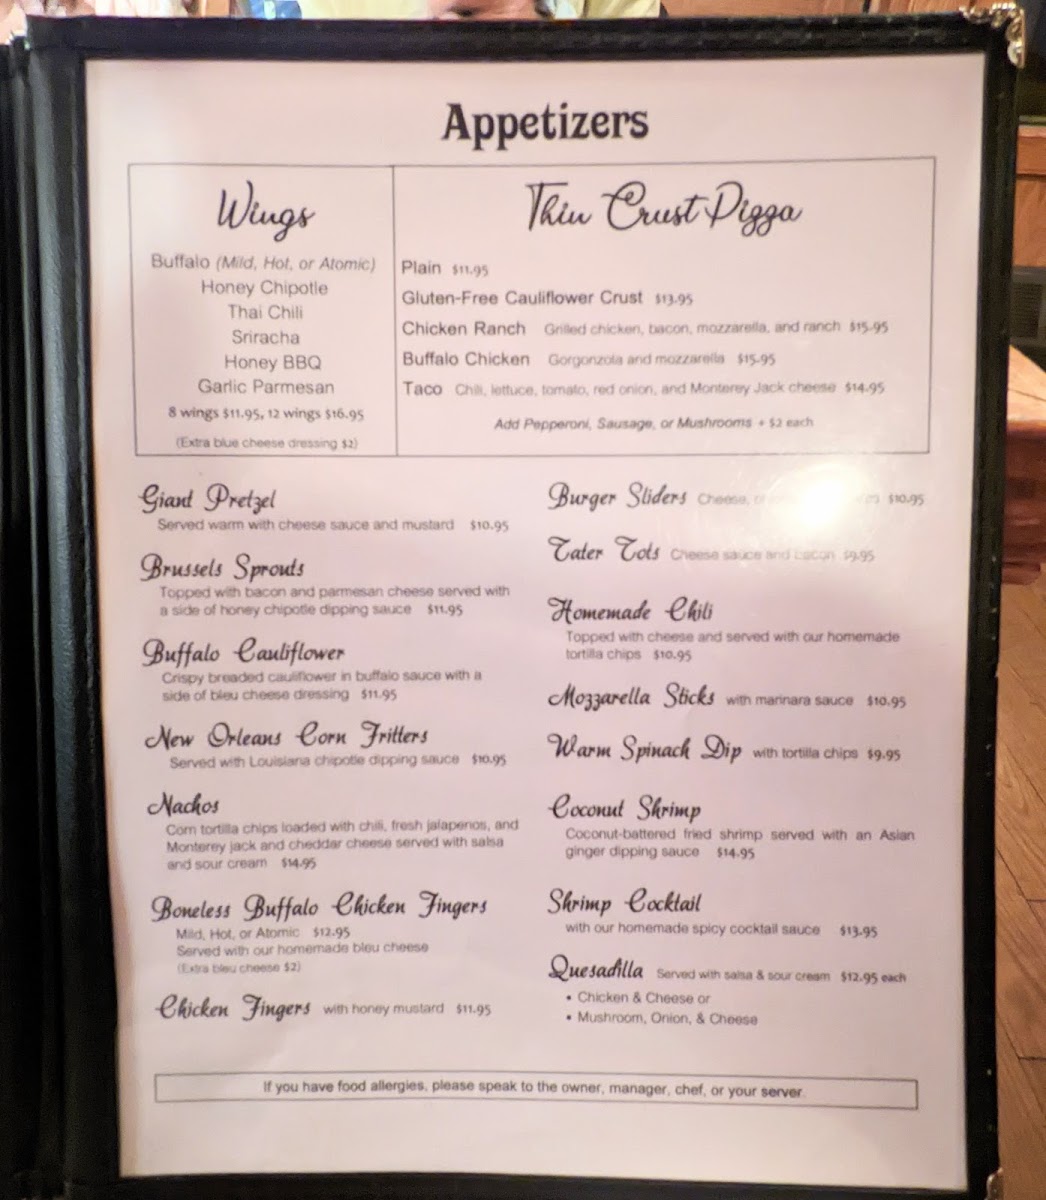 Appetizers
Wings
Buffalo (Mild, Hot, or Atomic)
Honey Chipotle
Thai Chili
Sriracha
Honey BBQ
Garlic Parmesan
8 wings $11.95, 12 wings $16.95
(Extra blue cheese dressing $2)
Thin Crust Pizza
Plain $11.95
Gluten-Free Cauliflower Crust $13.95
Chicken Ranch Grilled chicken, bacon, mozzarella, and ranch $15.95
Buffalo Chicken Gorgonzola and mozzarella $15.95
Taco Chili, lettuce, tomato, red onion, and Monterey Jack cheese $14.95
Add Pepperoni, Sausage, or Mushrooms + $2 each
Giant Pretzel
Served warm with cheese sauce and mustard $10.95
Brussels Sprouts
Topped with bacon and parmesan cheese served with
a side of honey chipotle dipping sauce $11.95
Buffalo Cauliflower
Crispy breaded cauliflower in buffalo sauce with a
side of bleu cheese dressing $11.95
New Orleans Corn Fritters
Served with Louisiana chipotle dipping sauce $10.95
Nachos
Corn tortilla chips loaded with chili, fresh jalapenos, and
Monterey jack and cheddar cheese served with salsa
and sour cream $14.95
Boneless Buffalo Chicken Fingers
Mild, Hot, or Atomic $12.95
Served with our homemade bleu cheese
(Extra bleu cheese $2)
Chicken Fingers with honey mustard $11.95
Burger Sliders Cheese, $10.95
Tater Tots Cheese sauce and bacon $9.95
Homemade Chili
Topped with cheese and served with our homemade
tortilla chips $10.95
Mozzarella Sticks with marinara sauce $10.95
Warm Spinach Dip with tortilla chips $9.95
Coconut Shrimp
Coconut-battered fried shrimp served with an Asian
ginger dipping sauce $14.95
Shrimp Cocktail
with our homemade spicy cocktail sauce $13.95
Quesadilla Served with salsa & sour cream $12.95 each
• Chicken & Cheese or
• Mushroom, Onion, & Cheese
If you have food allergies, please speak to the owner, manager, chef, or your server.